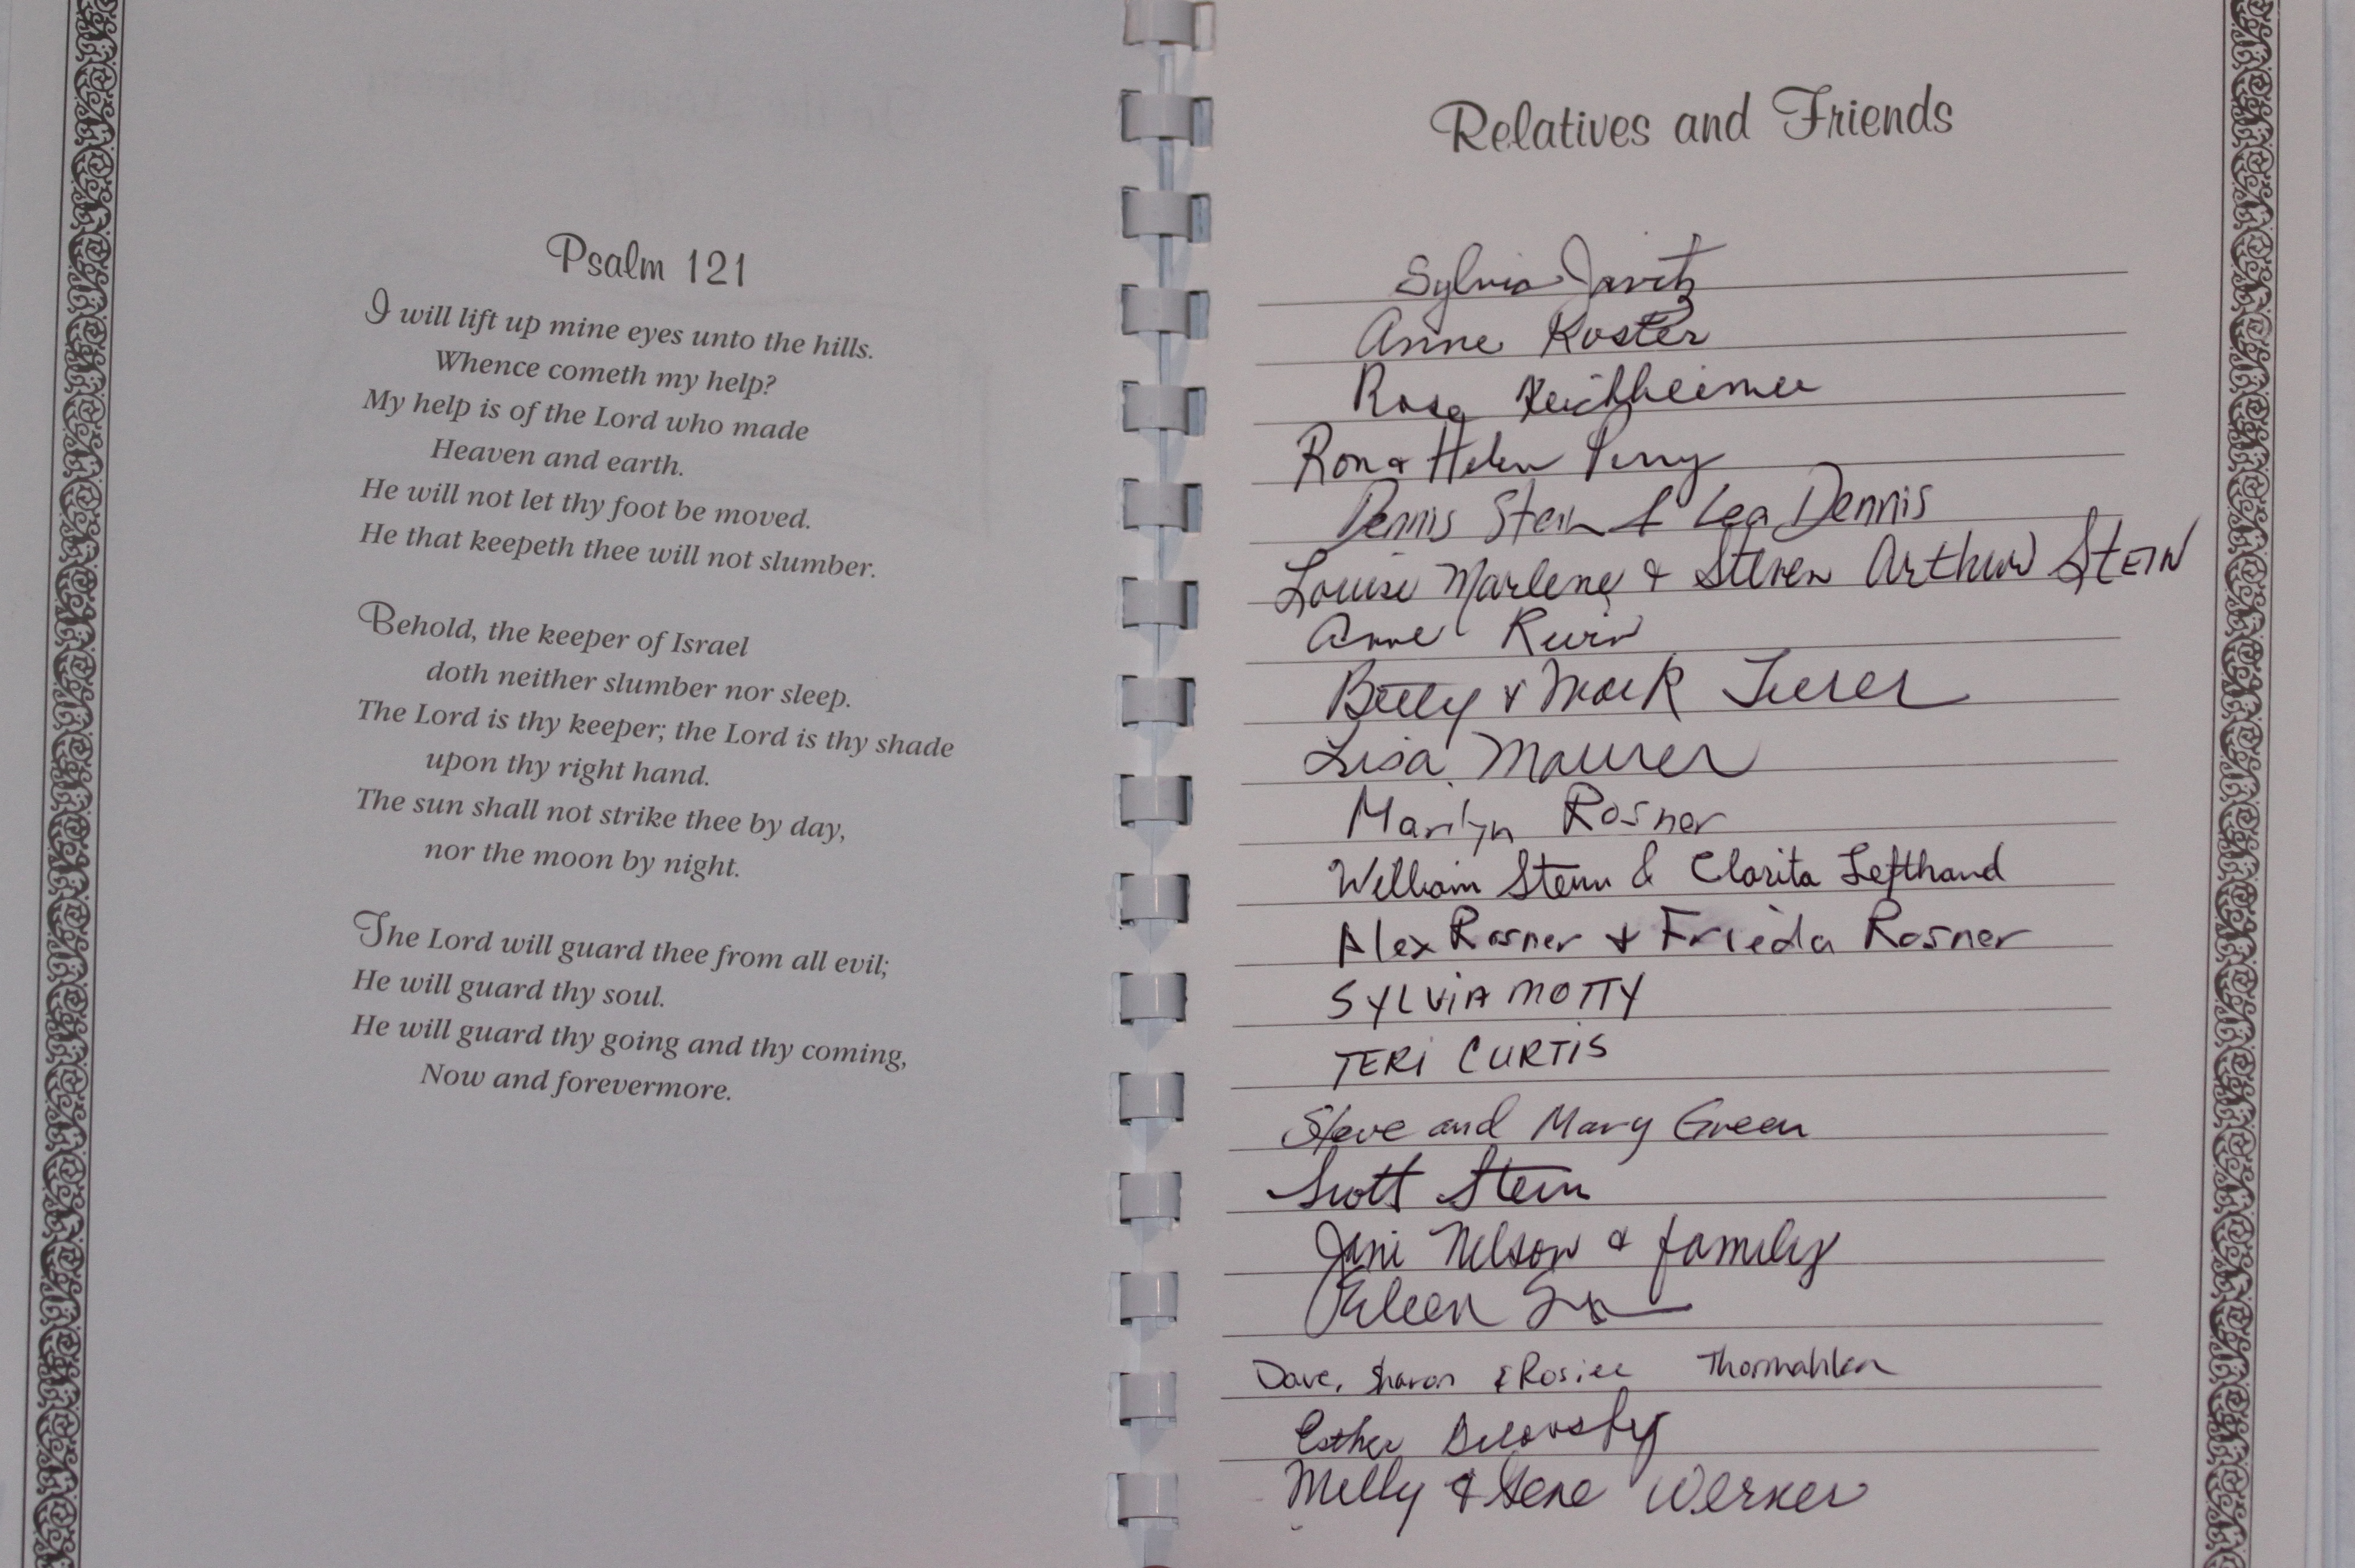 Psalm 121
I will lift up mine eyes unto the hills.
Whence cometh my help?
My help is of the Lord who made
Heaven and earth.
He will not let thy foot be moved.
He that keepeth thee will not slumber.
Behold, the keeper of Israel
doth neither slumber nor sleep.
The Lord is thy keeper; the Lord is thy shade
upon thy right hand.
The sun shall not strike thee by day,
nor the moon by night.
The Lord will guard thee from all evil;
He will guard thy soul.
He will guard thy going and thy coming,
Now and forevermore.
Relatives and Friends
Sylvia Javitz
Anne Koster
Rose
Ron & Helen Perry
Dennis Stein & Lea Dennis
Louise Marlene & Steven Arthur STEIN
Anne
Betty & Mark
Lisa Maurer
Marilyn Rosner
William Stern & Clarita Lefthand
Alex Rosner & Frieda Rosner
SYLViA MOTTY
TERi CURTiS
Steve and Mary Green
Scott Stern
Jani Nelson & family
Eileen
Dave, Sharon & Rosiee Thormahlen
Esther
Melly & Gene Werker